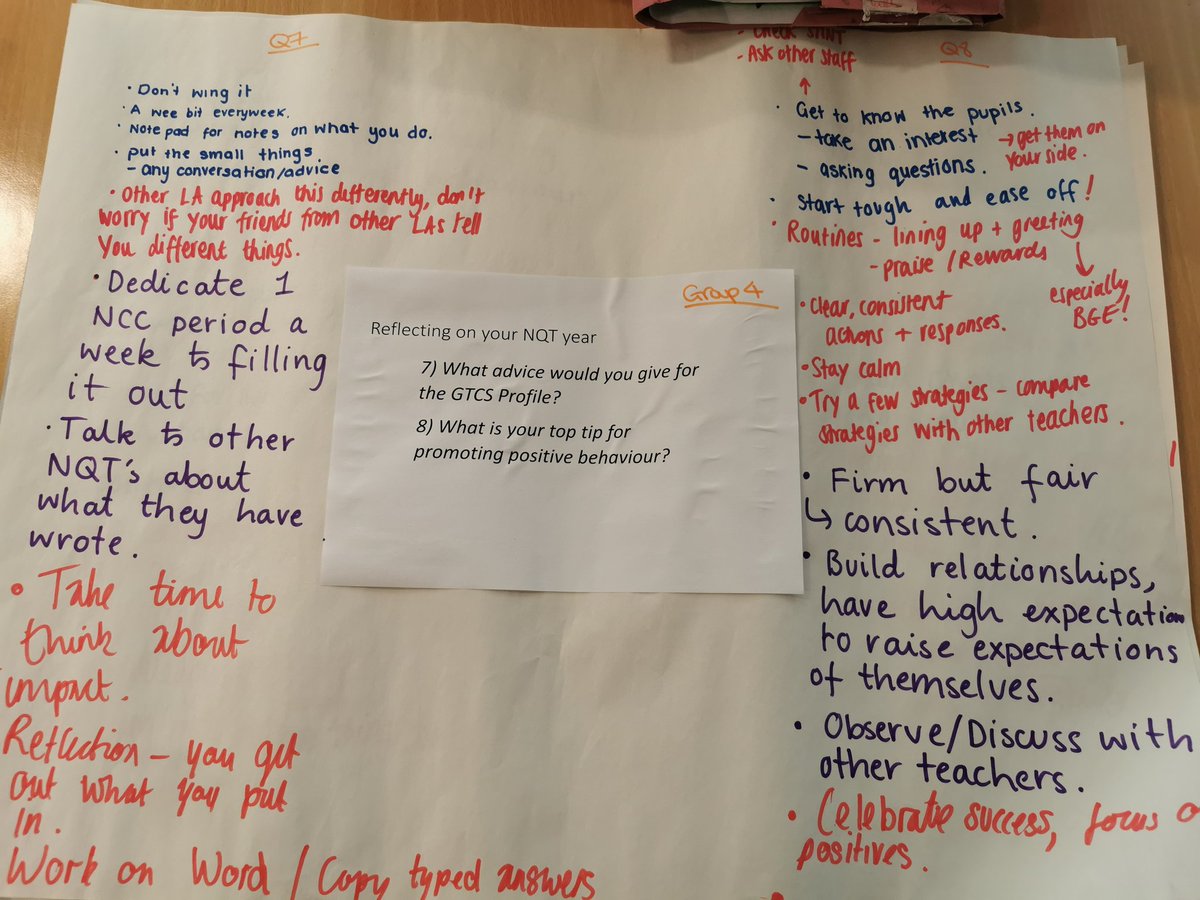 Q7
• Don't wing it
• A wee bit everyweek.
• Note pad for notes on what you do.
• put the small things.
- any conversation/advice
• Other LA approach this differently, don't
worry if your friends from other LAs tell
You different things.
• Dedicate 1
NCC period a
week to filling
it out
• Talk to other
NQT's about
what they have
wrote.
• Take time to
think about
impact.
Reflection – you get
out what you put
in.
Work on Word / Copy typed answers
Group 4
Reflecting on your NQT year
7) What advice would you give for
the GTCS Profile?
8) What is your top tip for
promoting positive behaviour?
Q8
- Check
- Ask other staff
↑
• Get to know the pupils.
– take an interest → get them on
your side.
– asking questions.
• Start tough and ease off!
• Routines - lining up + greeting
- praise / Rewards
↓
especially
BGE!
• Clear, consistent
actions + responses.
• Stay calm
• Try a few strategies – compare
strategies with other teachers.
• Firm but fair
↳ consistent.
• Build relationships,
have high expectation
to raise expectations
of themselves.
• Observe/Discuss with
other teachers.
• Celebrate success, focus o
positives.